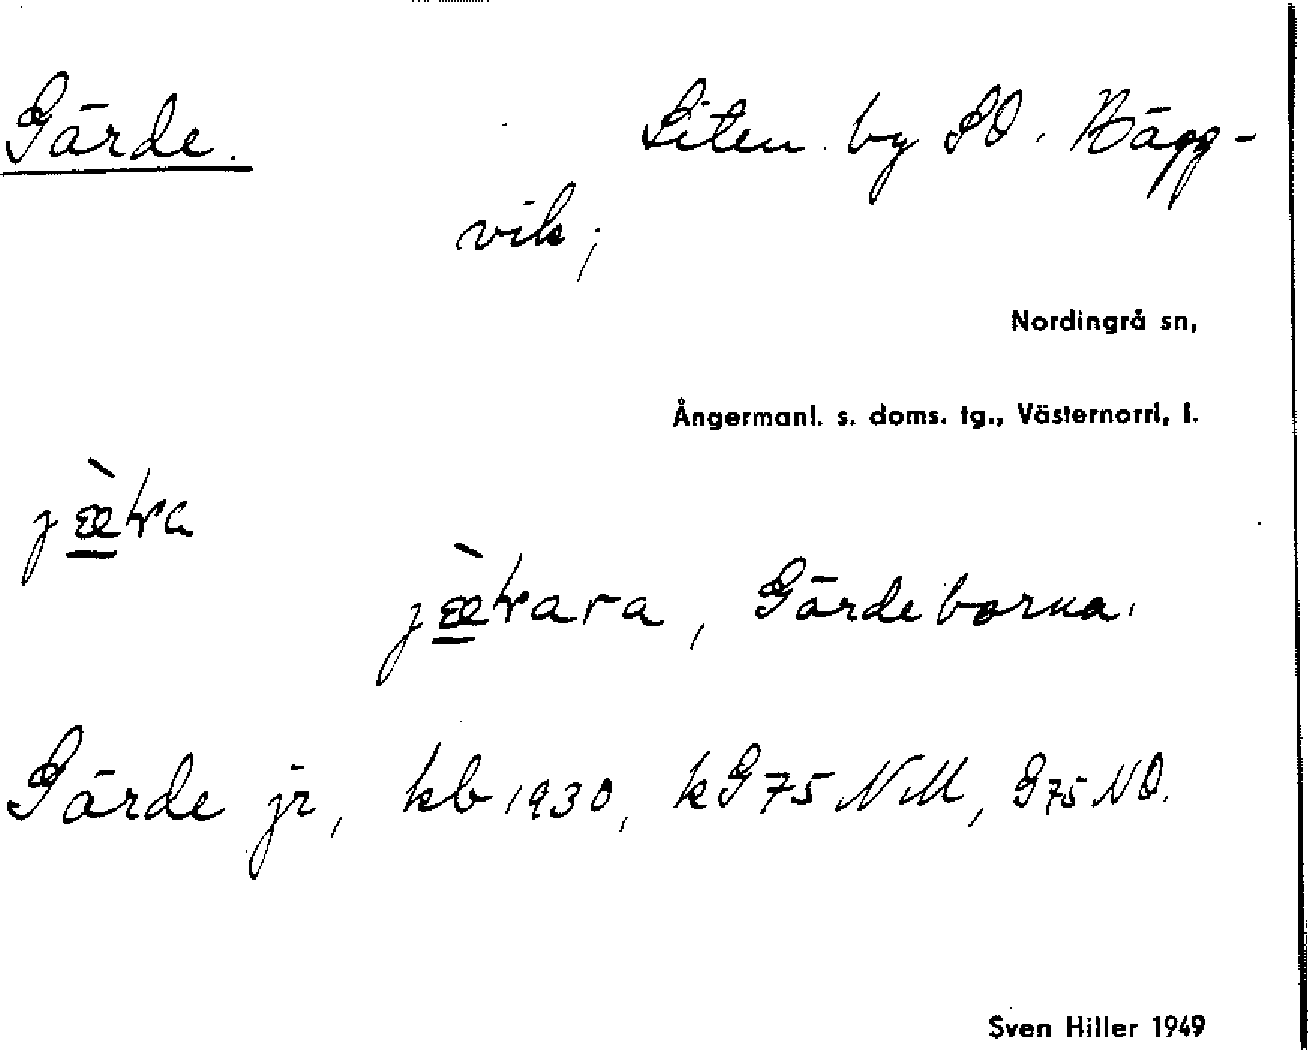 Gärde.
Liten by SO. Hägg-
vik;
Nordingrå sn,
Ångermanl. s. doms. tg., Västernorrl. l.
Gärdeborna.
Gärde jr, kb 1930, kG75NM, G75NO.
Sven Hiller 1949